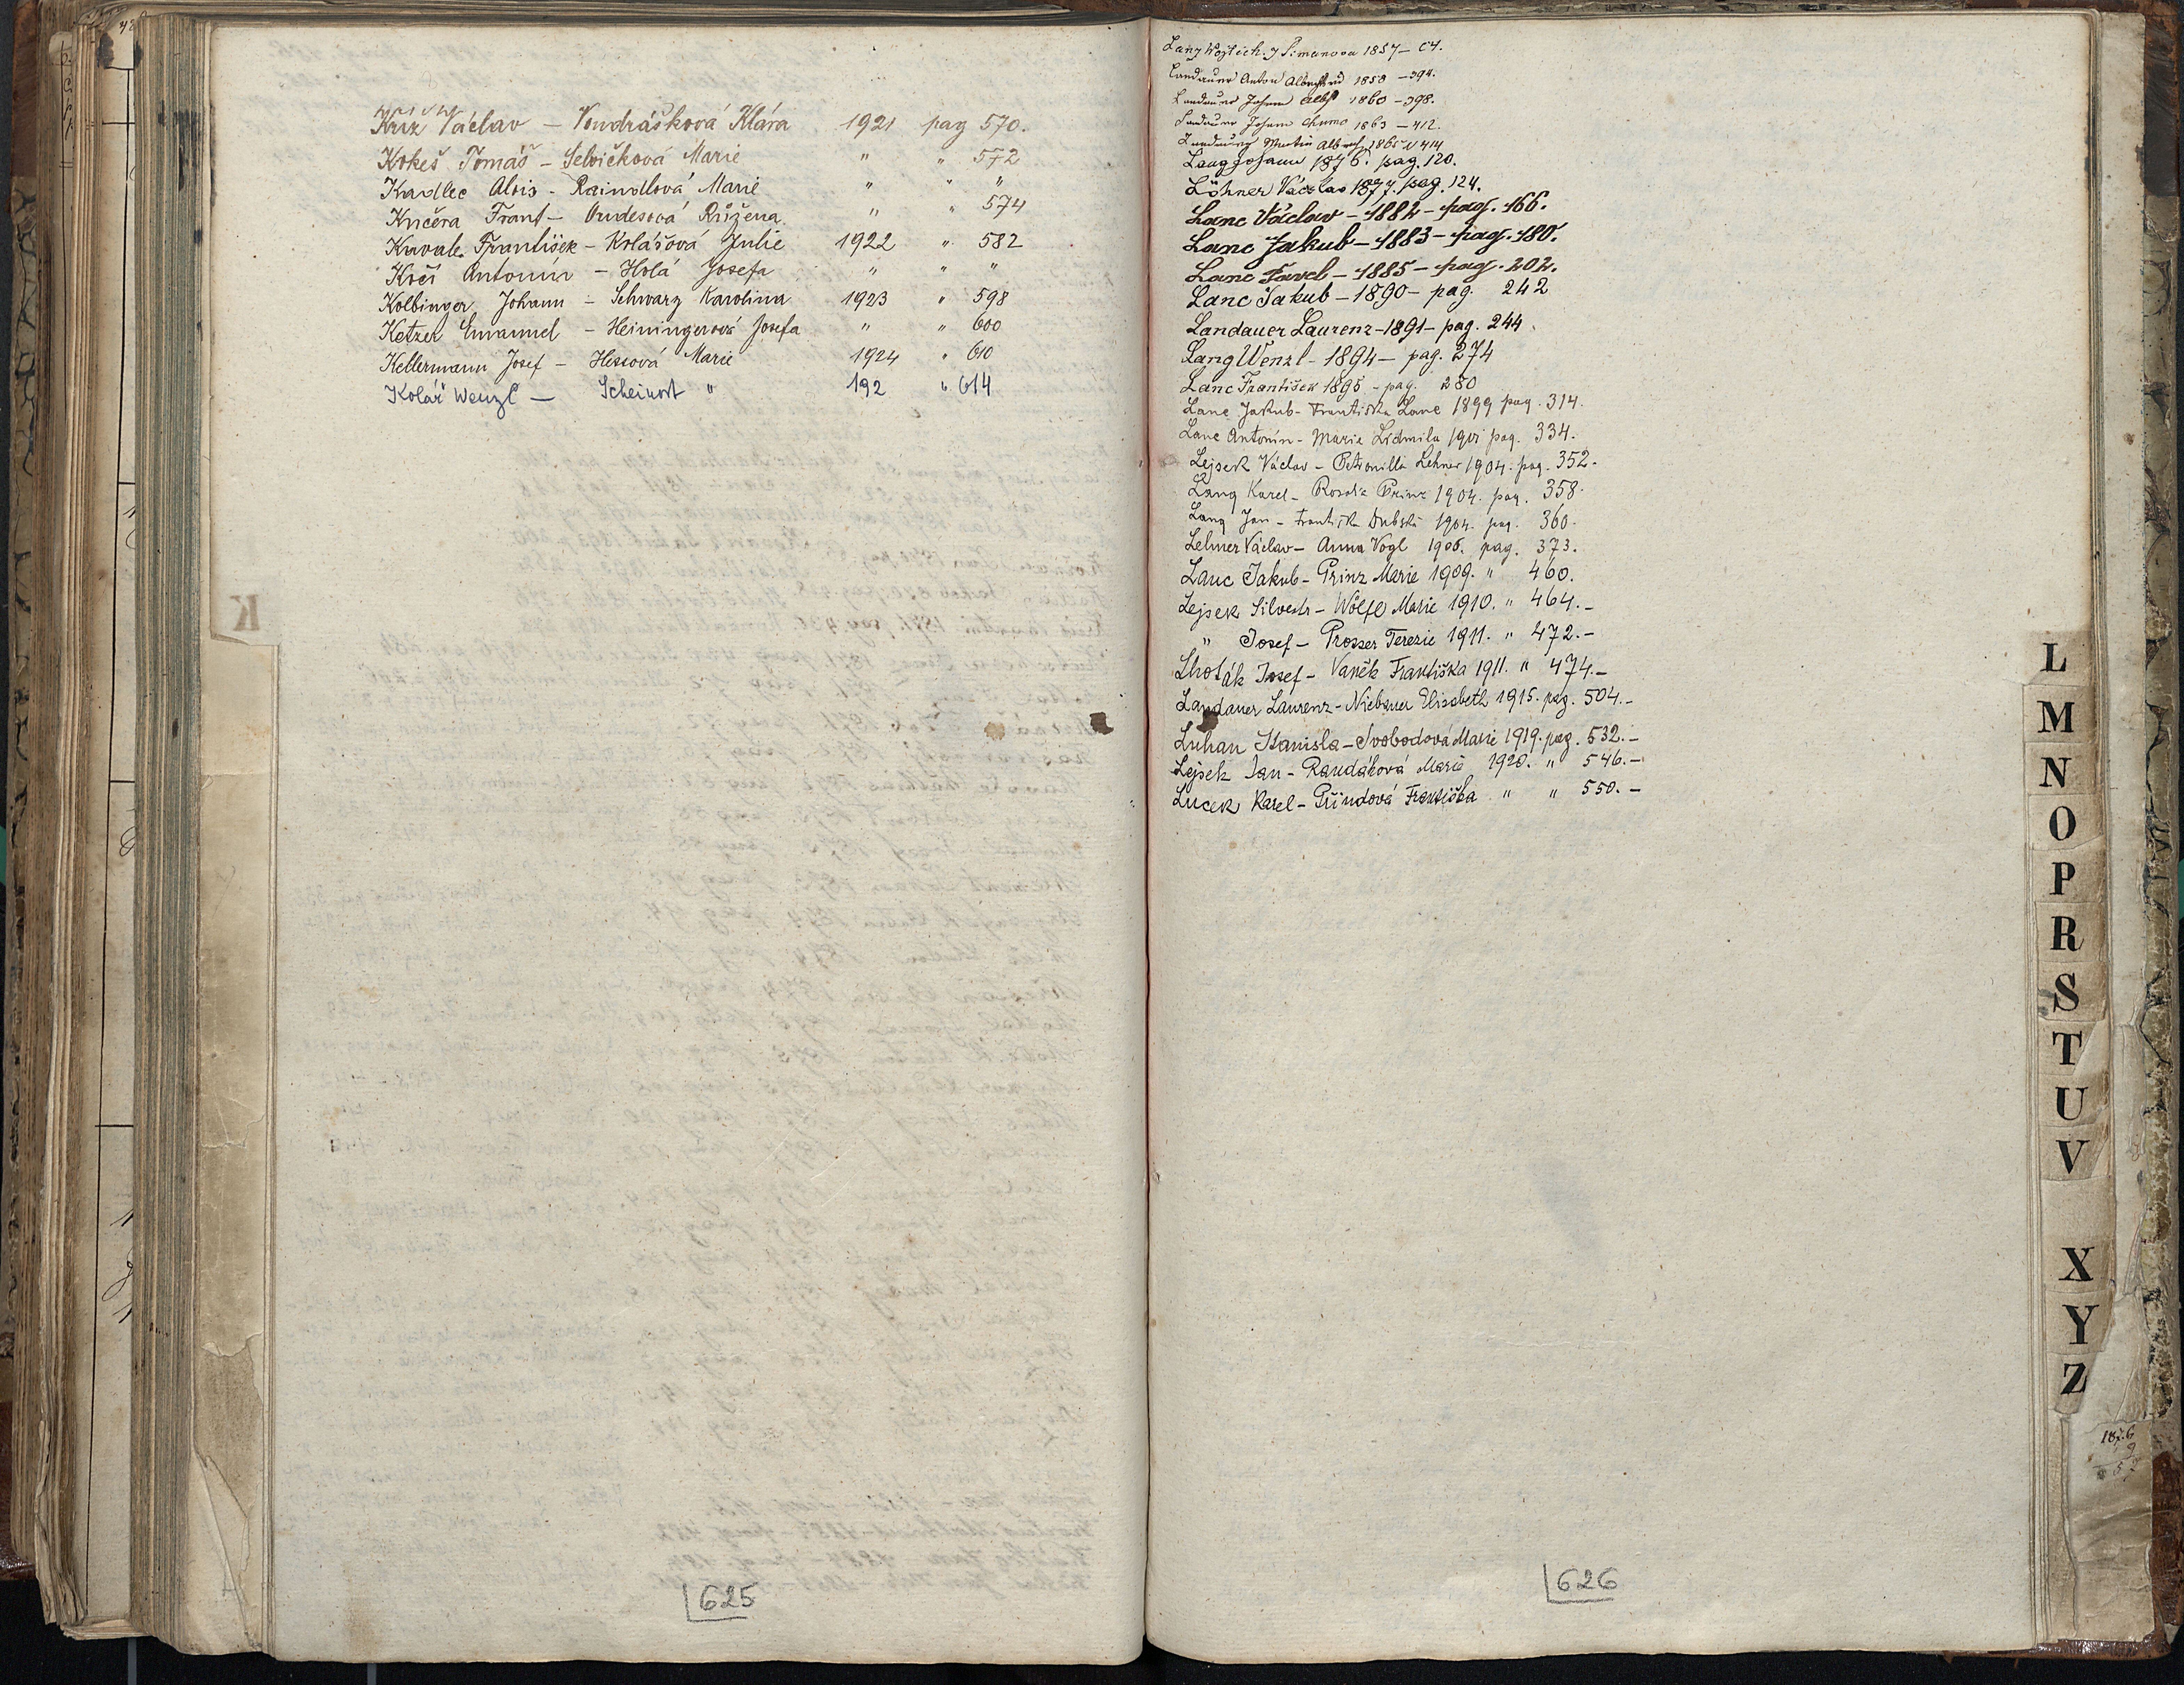 Kříž Václav — Vondrášková Klára 1921 pag 570.
Kokeš Tomáš — Selvičková Marie " " 572
Kadlec Alois - Raindlová Marie " " "
Kučera Frant — Oudesová Růžena " " 574
Kavale František — Kolářová Julie 1922 " 582
Kreš Antonín — Holá Josefa " " "
Kolbinger Johann — Schwarz Karolina 1923 " 598
Ketzer Emanuel — Heiningerová Josefa " " 600
Kellermann Josef — Hessová Marie 1924 " 610
Kolář Wenzl — Scheinost " 192 " 614
K
625
Lang Wojtěch. 1857 —
Landauer Anton 1858 — 394.
Landauer Johann 1860 — 398.
Landauer Johann 1863 — 412.
Landauer Martin 1865 414
Lang Johann 1876. pag. 120.
Löhner Václav 1877. pag. 124.
Lanc Václav — 1882 — pag. 166.
Lanc Jakub — 1883 — pag. 180.
Lanc Pavel — 1885 — pag. 202.
Lanc Jakub — 1890 — pag. 242
Landauer Laurenz — 1891 — pag. 244.
Lang Wenzl - 1894 — pag. 274
Lanc František 1895 - pag. 280
Lanc Jakub - Františka Lanc 1899 pag. 314.
Lanc Antonín - Marie Lidmila 1901 pag. 334.
Lejsek Václav — Petronilla Lehner 1904. pag. 352.
Lang Karel — Rosalie Prinz 1904. pag. 358.
Lang Jan — Františka Dubská 1904. pag. 360.
Lehner Václav — Anna Vogl 1905. pag. 373.
Lanc Jakub — Prinz Marie 1909. " 460.
Lejsek Silvestr — Wölfl Marie 1910. " 464.—
" Josef — Prosser Terezie 1911. " 472.—
Lhoták Josef — Vaněk Františka 1911. " 474.—
Landauer Laurenz - Niebauer Elisabeth 1915. pag. 504.—
Luhan Stanisla — Svobodová Marie 1919. pag. 532.—
Lejsek Jan — Randáková Marie 1920. " 546.—
Lucek Karel — Přindová Františka " " 550.—
L
M
N
O
P
R
S
T
U
V
X
Y
Z
626